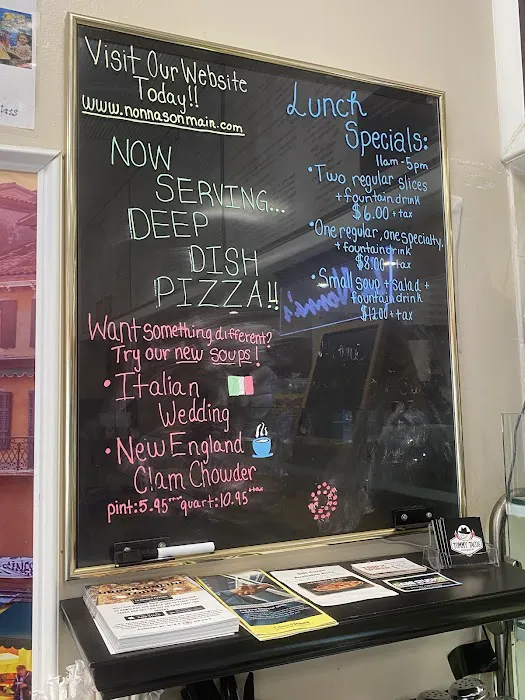 Visit Our Website
Today!!
www.nonnasonmain.com
NOW
SERVING...
DEEP
DISH
PIZZA!!
Want something different?
Try our new soups!
• Italian
Wedding
• New England
Clam Chowder
pint: 5.95 +tax quart: 10.95 +tax
Lunch
Specials:
11am-5pm
• Two regular slices
+ fountain drink
$6.00 + tax
• One regular, one specialty,
+ fountain drink
$8.00 + tax
• Small soup + salad +
fountain drink
$12.00 + tax